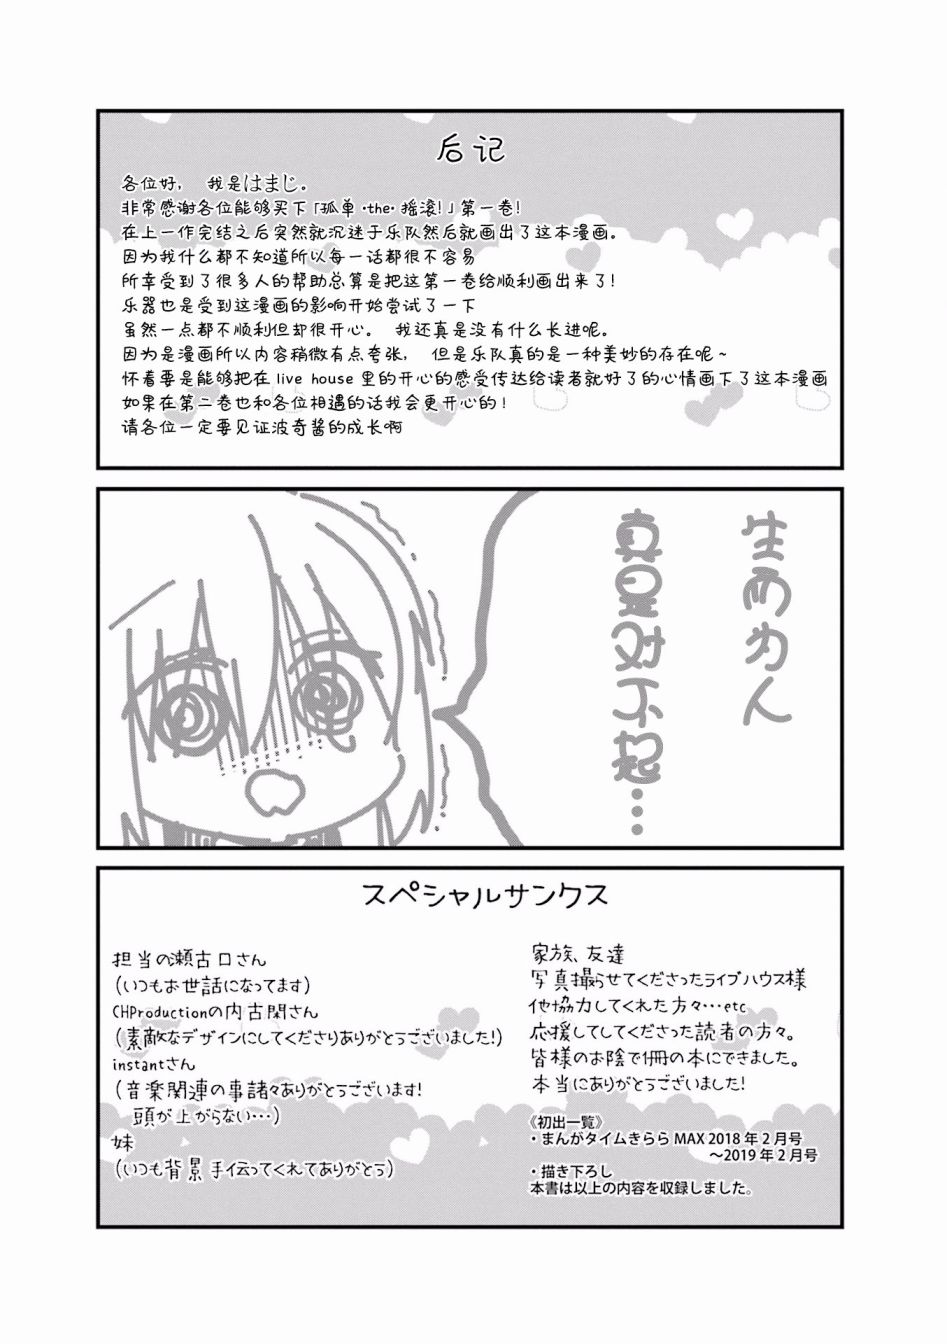 后记
各位好， 我是はまじ。
非常感谢各位能够买下「孤单·the·摇滚!」第一卷!
在上一作完结之后突然就沉迷于乐队然后就画出了这本漫画。
因为我什么都不知道所以每一话都很不容易
所幸受到了很多人的帮助总算是把这第一卷给顺利画出来了!
乐器也是受到这漫画的影响开始尝试了一下
虽然一点都不顺利但却很开心。 我还真是没有什么长进呢。
因为是漫画所以内容稍微有点夸张， 但是乐队真的是一种美妙的存在呢~
怀着要是能够把在 live house 里的开心的感受传达给读者就好了的心情画下了这本漫画
如果在第二卷也和各位相遇的话我会更开心的!
请各位一定要见证波奇酱的成长啊
生而为人
真是对不起…
スペシャルサンクス
担当の瀬古口さん
(いつもお世話になってます)
CHProductionの内古閑さん
(素敵なデザインにしてくださりありがとうございました!)
instantさん
(音楽関連の事諸々ありがとうございます!
頭が上がらない…)
妹
(いつも背景手伝ってくれてありがとう)
家族、友達
写真撮らせてくださったライブハウス様
他協力してくれた方々…etc
応援してしてくださった読者の方々。
皆様のお陰で冊の本にできました。
本当にありがとうございました!
《初出一覧》
・まんがタイムきららMAX 2018年2月号
～2019年2月号
・描き下ろし
本書は以上の内容を収録しました。